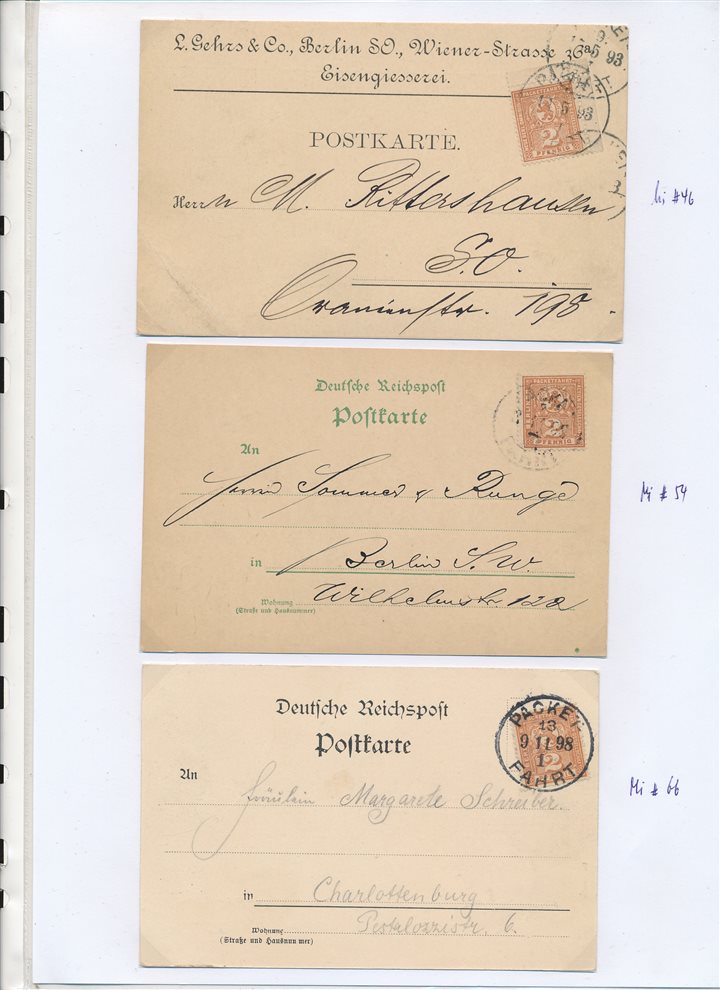 L. Gehrs & Co., Berlin SO., Wiener-Strasse 36a
Eisengiesserei.
PACKETFAHRT
2
PFENNIG
93
5 93
POSTKARTE.
Herrn M. Rittershausen
S.O.
Oranienstr. 198.
Mi #46
Deutsche Reichspost
Postkarte
PACKETFAHRT
2
PFENNIG
An
Herrn Sommer & Runge
in Berlin S.W.
Wilhelmstr. 122
Wohnung
(Straße und Hausnummer)
Mi # 54
Deutsche Reichspost
Postkarte
PACKET-
13
9 11 98
1
FAHRT.
2
An
Fräulein Margarete Schreiber.
in Charlottenburg
Pestalozzistr. 6.
Wohnung
(Straße und Hausnummer)
Mi # 66